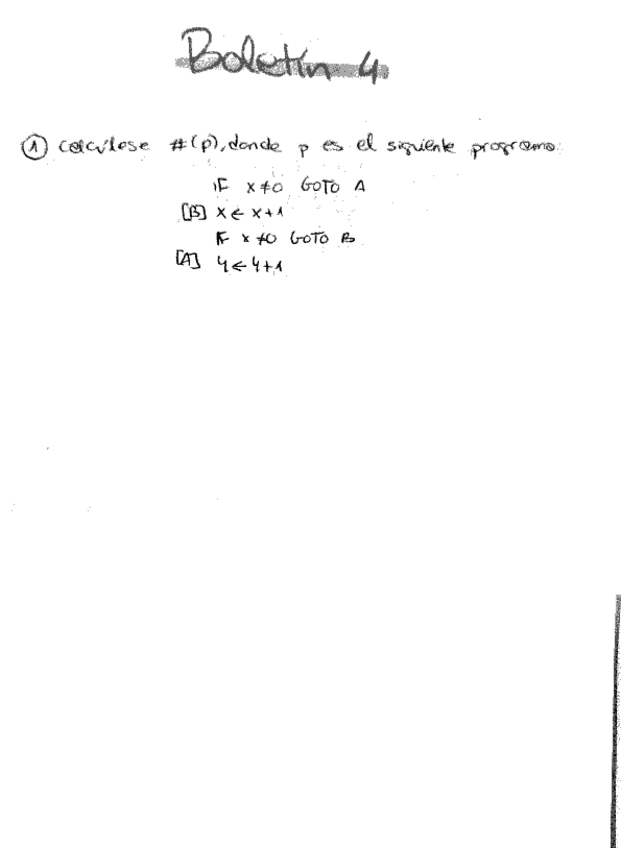 Boletín 4
① Calcúlese #(p), donde p es el siguiente programa:
IF X≠0 GOTO A
[B] X ← X+1
IF X≠0 GOTO B
[A] Y ← Y+1